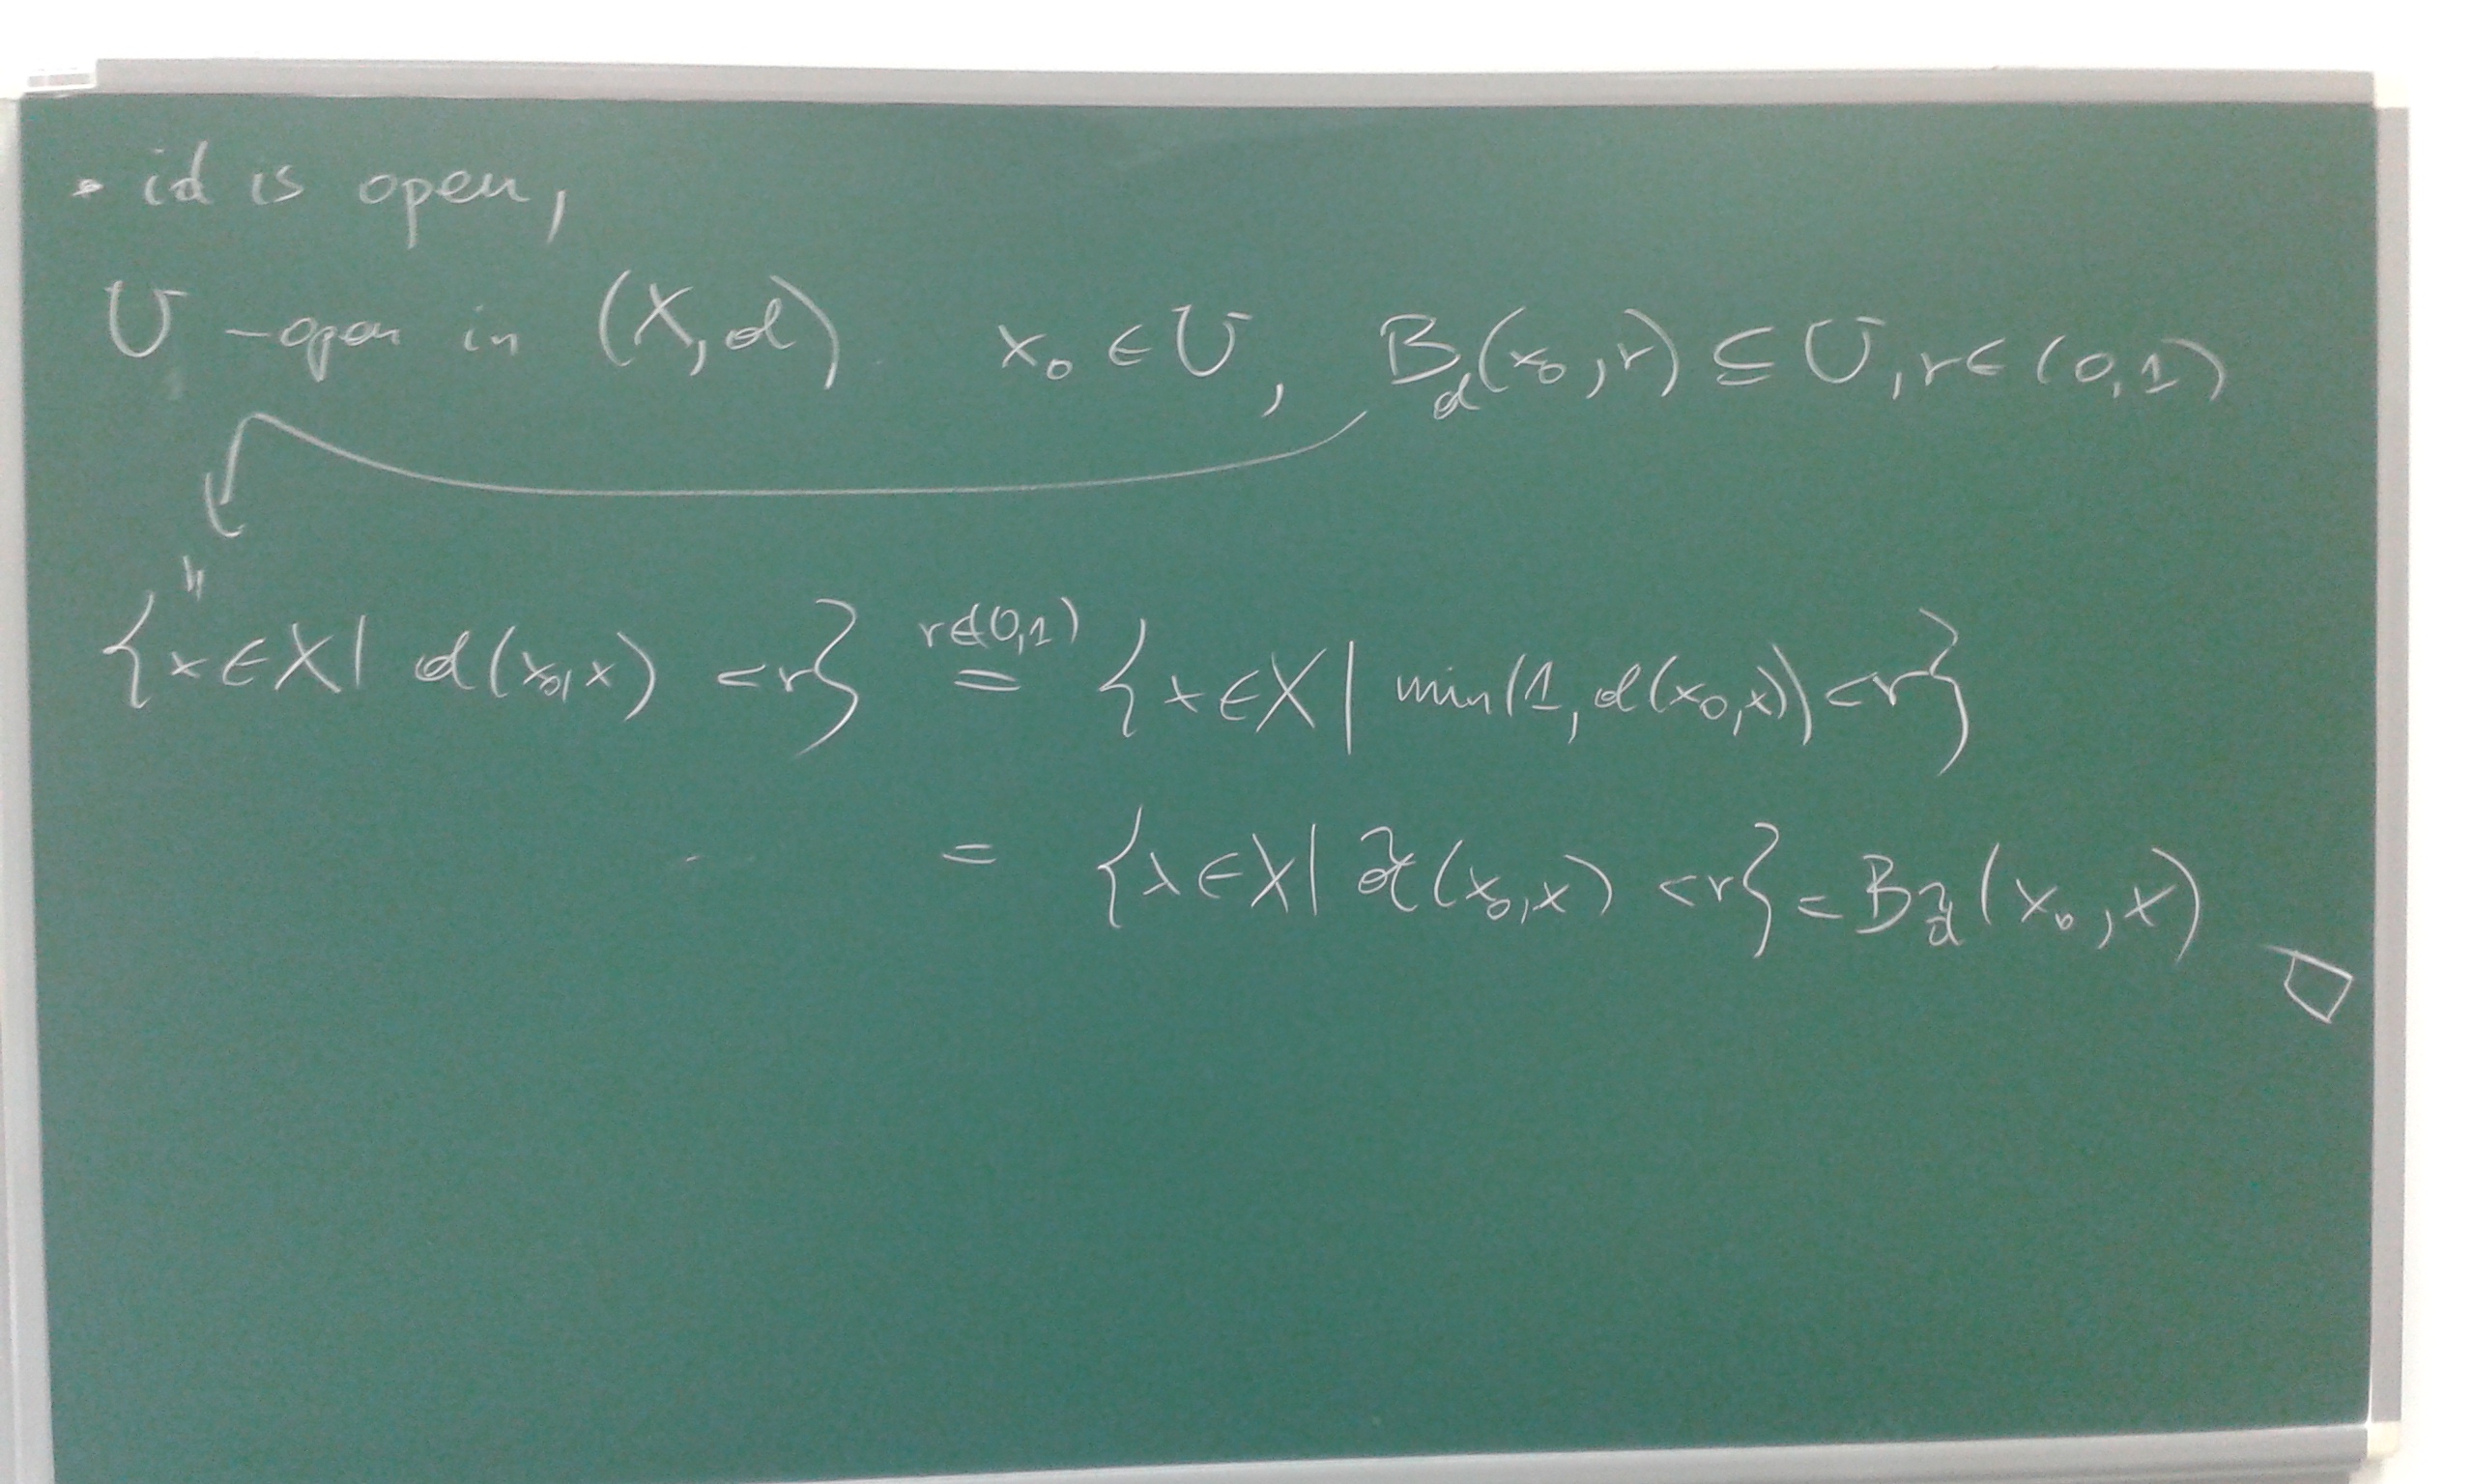 • id is open,
U - open in (X, d). x₀ ∈ U, B_d(x₀, r) ⊆ U, r ∈ (0, 1)
"
{x ∈ X | d(x₀, x) < r} =^{r∈(0,1)} {x ∈ X | min(1, d(x₀, x)) < r}
= {x ∈ X | d̃(x₀, x) < r} = B_d̃(x₀, x) □